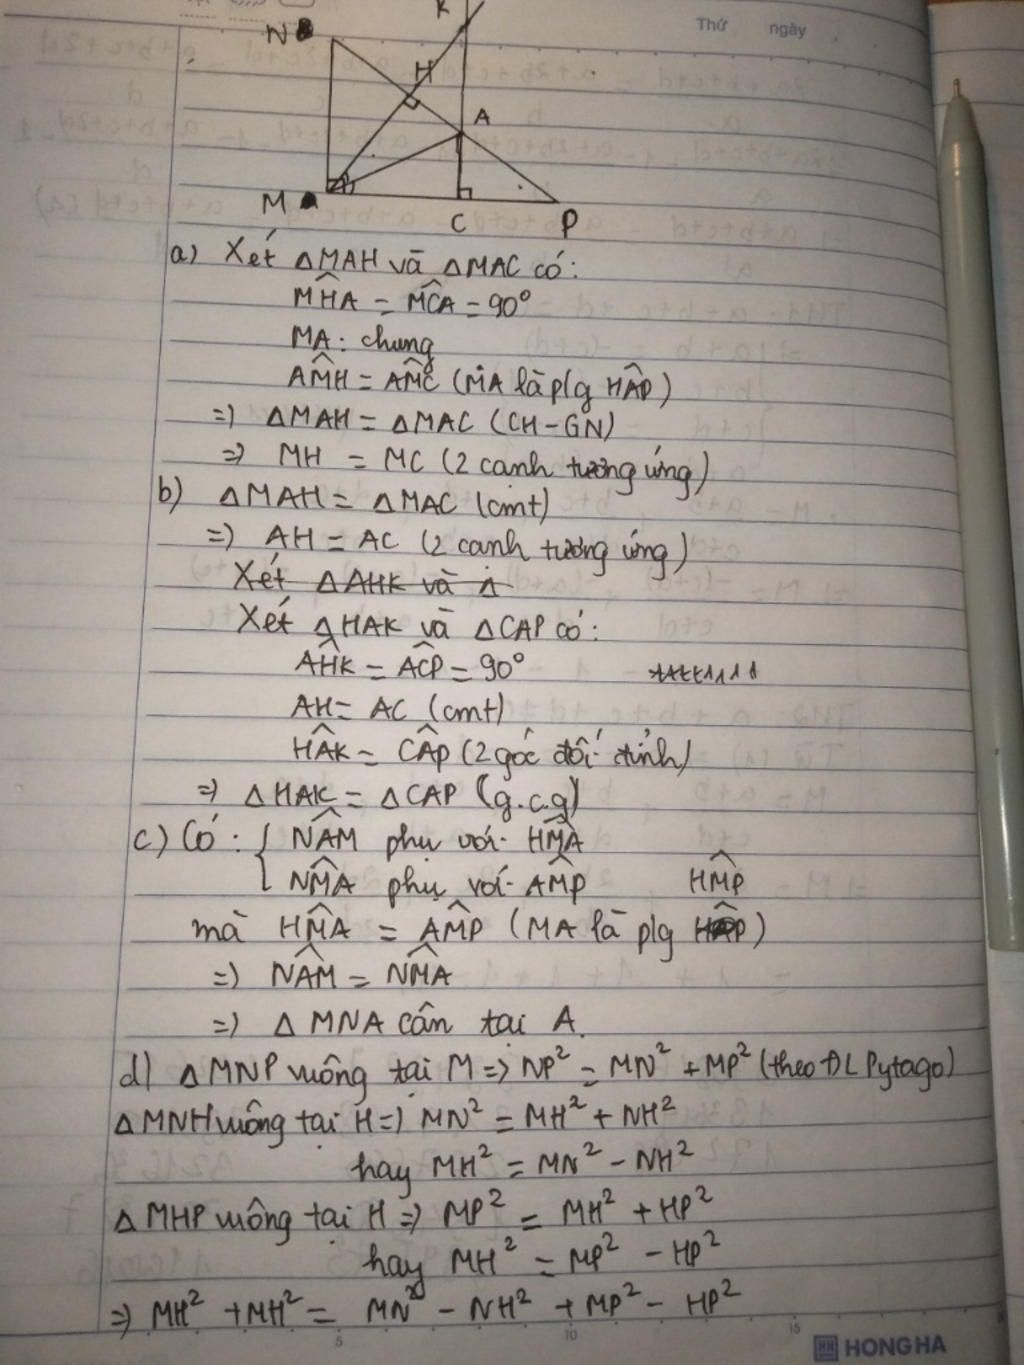 Thứ ngày
K
N
H
A
M
C
P
a) Xét △MAH và △MAC có:
MĤA = MĈA = 90°
MA: chung
AM̂H = AM̂C (MA là p/g HÂP)
=> △MAH = △MAC (CH-GN)
=> MH = MC (2 cạnh tương ứng)
b) △MAH = △MAC (cmt)
=> AH = AC (2 cạnh tương ứng)
Xét △AHK và △
Xét △HAK và △CAP có:
AĤK = AĈP = 90°
AH = AC (cmt)
HÂK = CÂP (2 góc đối đỉnh)
=> △HAK = △CAP (g.c.g)
c) Có: { NÂM phụ với HM̂A
NM̂A phụ với AM̂P HM̂P
mà HM̂A = AM̂P (MA là p/g HÂP)
=> NÂM = NM̂A
=> △MNA cân tại A.
d) △MNP vuông tại M => NP² = MN² + MP² (theo ĐL Pytago)
△MNH vuông tại H => MN² = MH² + NH²
hay MH² = MN² - NH²
△MHP vuông tại H => MP² = MH² + HP²
hay MH² = MP² - HP²
=> MH² + MH² = MN² - NH² + MP² - HP²
5 10 15
HH HONG HA